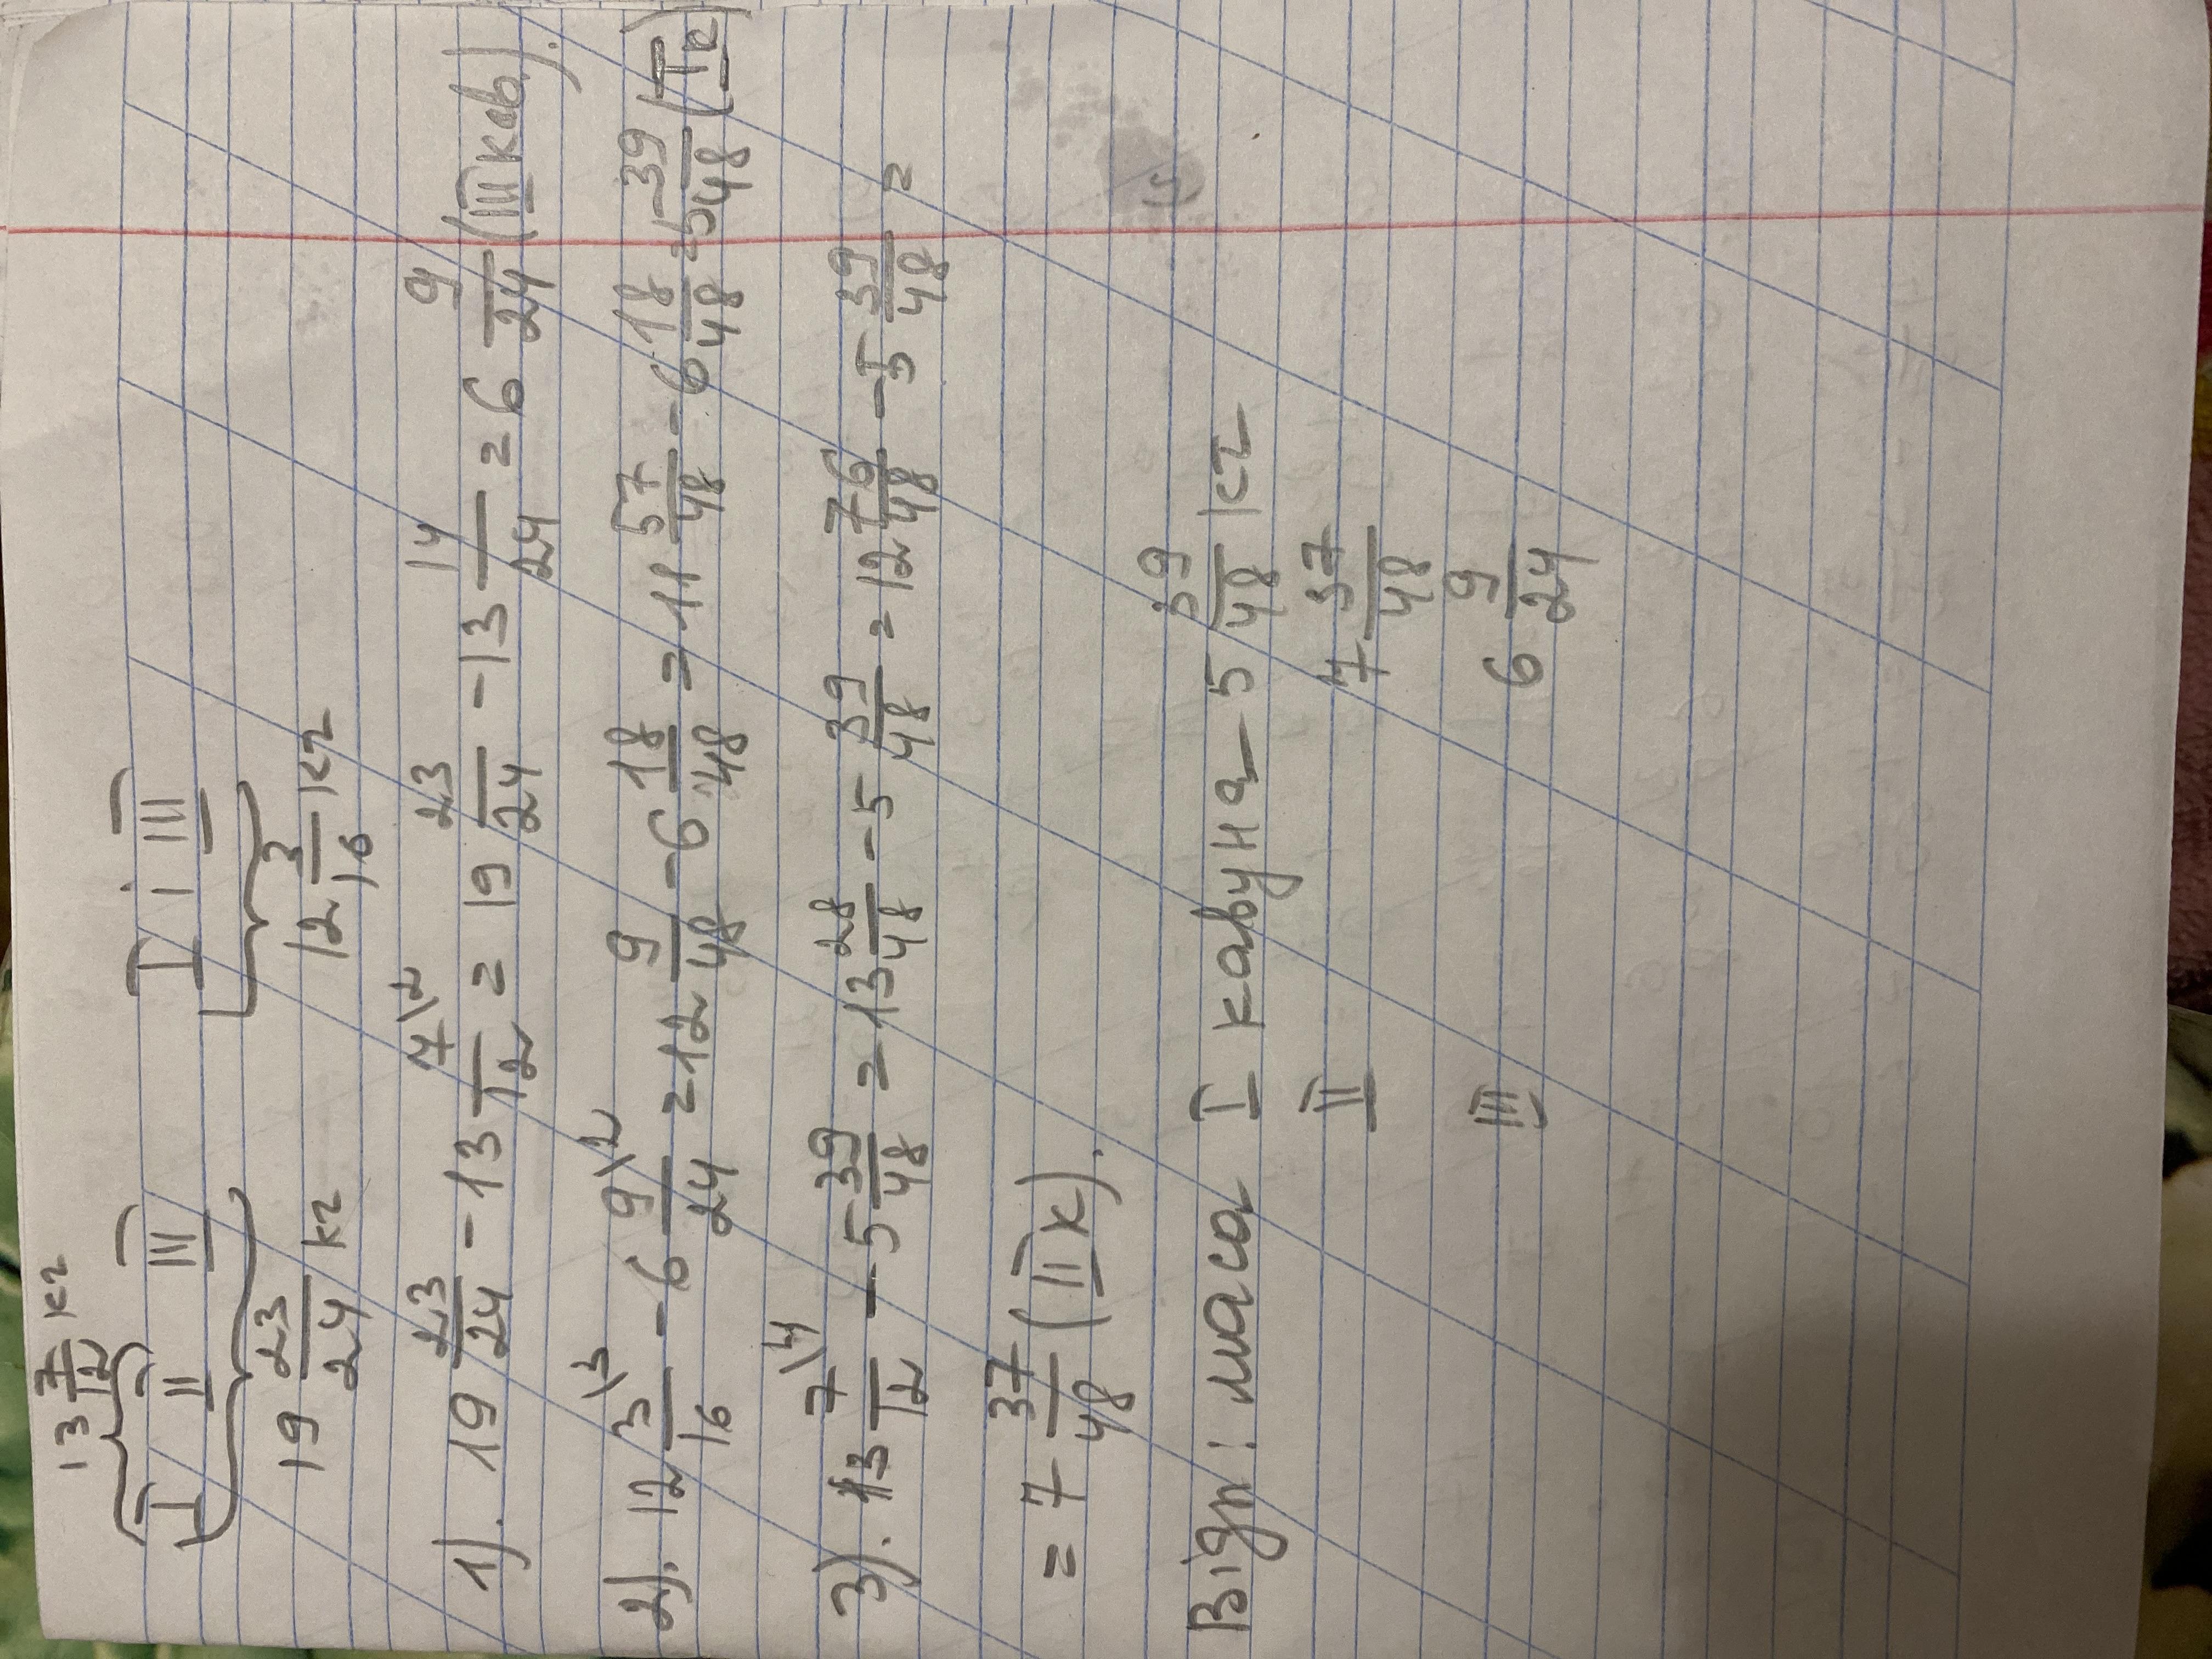 13 7/12 кг
I II III   I і III
19 23/24 кг   12 3/16 кг
1). 19 23/24 - 13 7\2/12 = 19 23/24 - 13 14/24 = 6 9/24 (III кав.).
2). 12 3\3/16 - 6 9\2/24 = 12 9/48 - 6 18/48 = 11 57/48 - 6 18/48 = 5 39/48 (I к)
3). 13 7\4/12 - 5 39/48 = 13 28/48 - 5 39/48 = 12 76/48 - 5 39/48 =
= 7 37/48 (II к).
Відп: маса I кавуна - 5 39/48 кг
II 7 37/48
III 6 9/24